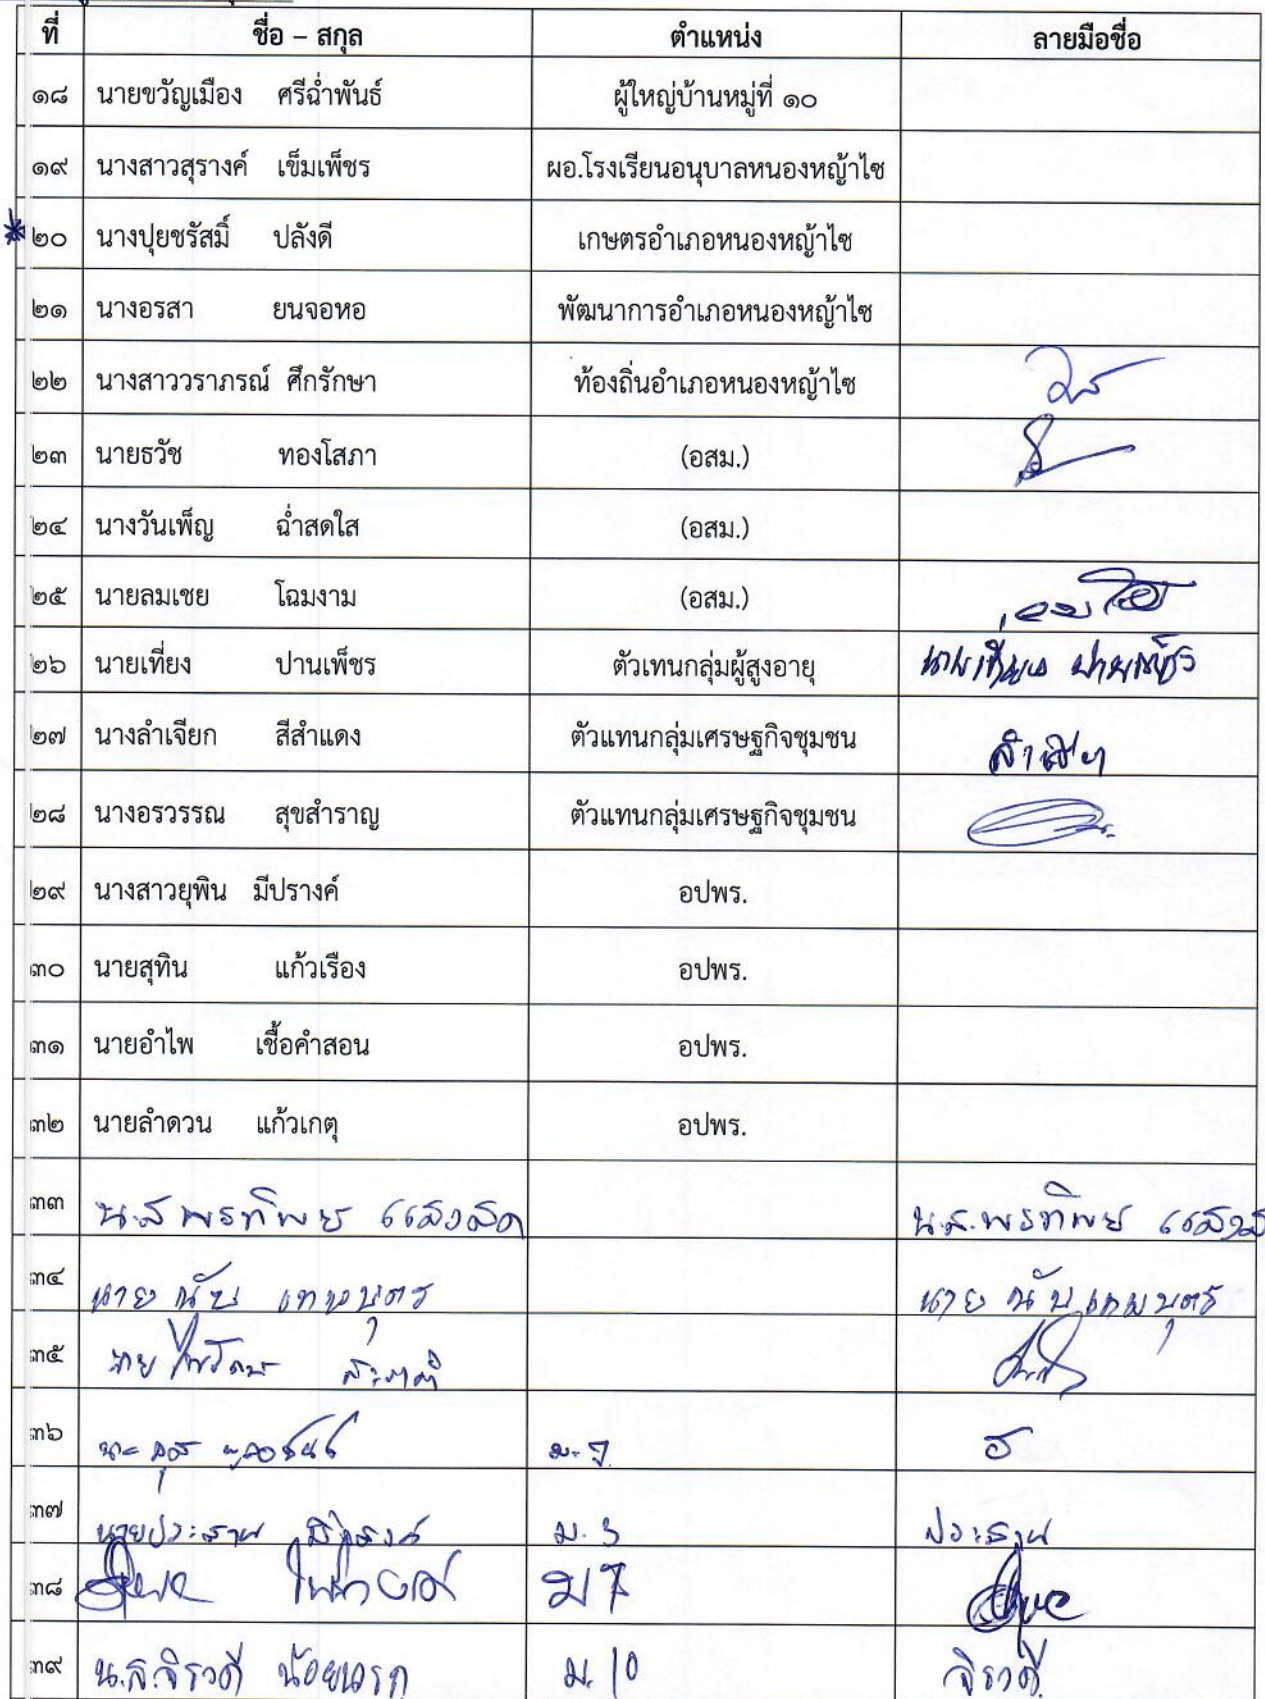 ที่ ชื่อ – สกุล ตำแหน่ง ลายมือชื่อ
๑๘ นายขวัญเมือง ศรีฉ่ำพันธ์ ผู้ใหญ่บ้านหมู่ที่ ๑๐
๑๙ นางสาวสุรางค์ เข็มเพ็ชร ผอ.โรงเรียนอนุบาลหนองหญ้าไซ
* ๒๐ นางปุยชรัสมิ์ ปลังดี เกษตรอำเภอหนองหญ้าไซ
๒๑ นางอรสา ยนจอหอ พัฒนาการอำเภอหนองหญ้าไซ
๒๒ นางสาววราภรณ์ ศึกรักษา ท้องถิ่นอำเภอหนองหญ้าไซ
๒๓ นายธวัช ทองโสภา (อสม.)
๒๔ นางวันเพ็ญ ฉ่ำสดใส (อสม.)
๒๕ นายลมเชย โฉมงาม (อสม.)
๒๖ นายเที่ยง ปานเพ็ชร ตัวเทนกลุ่มผู้สูงอายุ นายเที่ยง ปานเพ็ชร
๒๗ นางลำเจียก สีสำแดง ตัวแทนกลุ่มเศรษฐกิจชุมชน
๒๘ นางอรวรรณ สุขสำราญ ตัวแทนกลุ่มเศรษฐกิจชุมชน
๒๙ นางสาวยุพิน มีปรางค์ อปพร.
๓๐ นายสุทิน แก้วเรือง อปพร.
๓๑ นายอำไพ เชื้อคำสอน อปพร.
๓๒ นายลำดวน แก้วเกตุ อปพร.
๓๓ น.ส พรทิพย์ น.ส.พรทิพย์
๓๔ นาย บุตร นาย บุตร
๓๕ นาย
๓๖
๓๗ นายประสาน ม. 3 ประสาน
๓๘ ม 7
๓๙ น.ส.จิรวดี ม. 10 จิรวดี